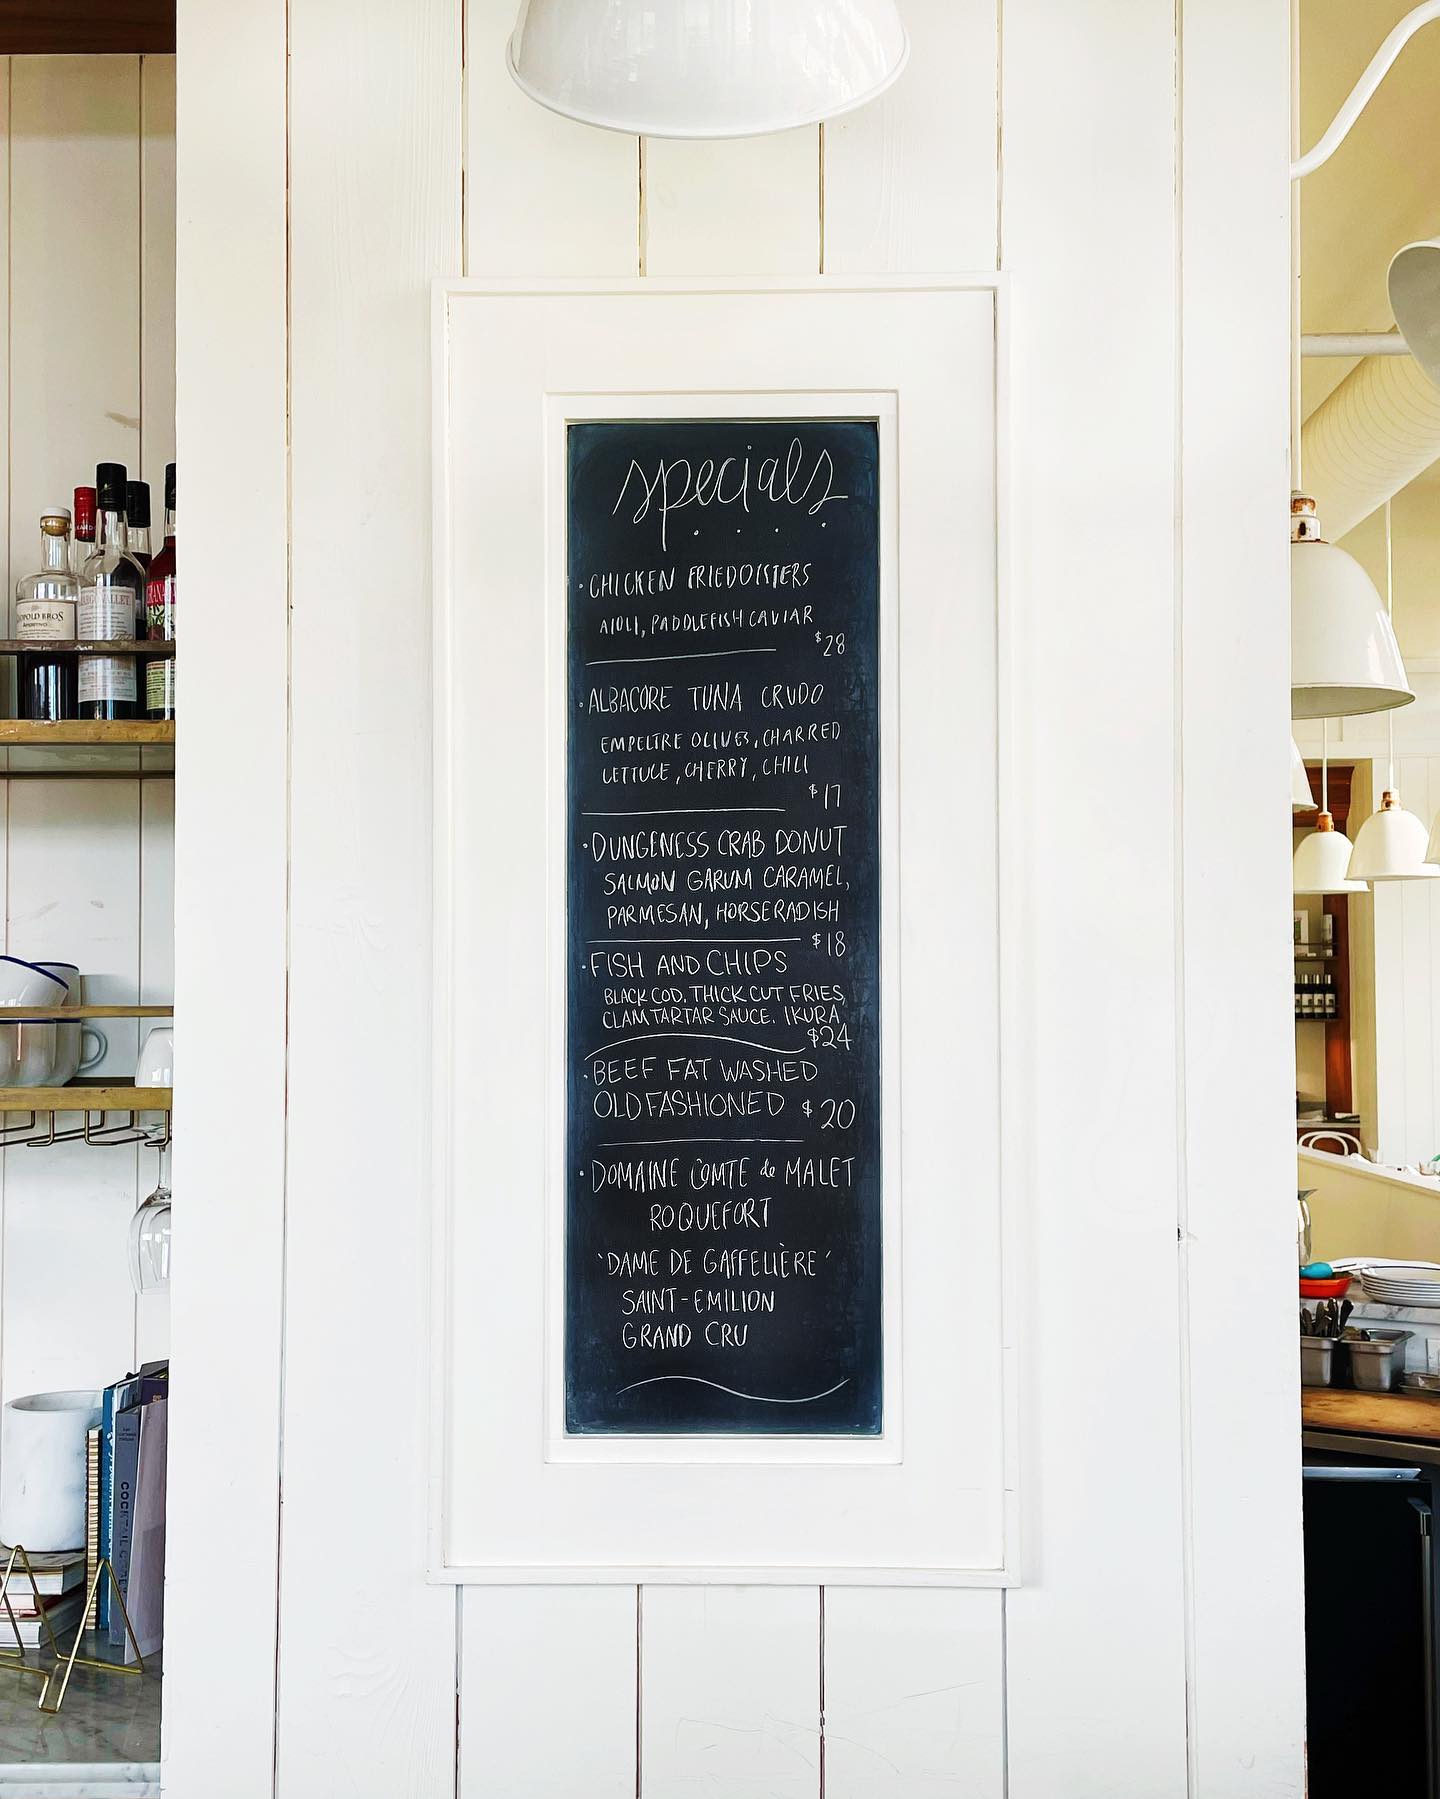 specials
• CHICKEN FRIED OISTERS
AIOLI, PADDLEFISH CAVIAR
$28
• ALBACORE TUNA CRUDO
EMPELTRE OLIVES, CHARRED
LETTUCE, CHERRY, CHILI
$17
• DUNGENESS CRAB DONUT
SALMON GARUM CARAMEL,
PARMESAN, HORSERADISH
$18
• FISH AND CHIPS
BLACK COD. THICK CUT FRIES,
CLAM TARTAR SAUCE. IKURA
$24
• BEEF FAT WASHED
OLD FASHIONED $20
• DOMAINE COMTE de MALET
ROQUEFORT
'DAME DE GAFFELIÈRE'
SAINT-EMILION
GRAND CRU
OPOLD BROS
Aperitivo
COCKTAIL